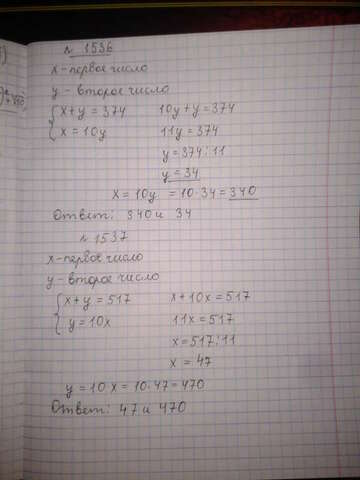 № 1536
x - первое число
y - второе число
x + y = 374    10y + y = 374
x = 10y    11y = 374
y = 374 : 11
y = 34
x = 10y = 10 · 34 = 340
Ответ: 340 и 34
№ 1537
x - первое число
y - второе число
x + y = 517    x + 10x = 517
y = 10x    11x = 517
x = 517 : 11
x = 47
y = 10x = 10 · 47 = 470
Ответ: 47 и 470